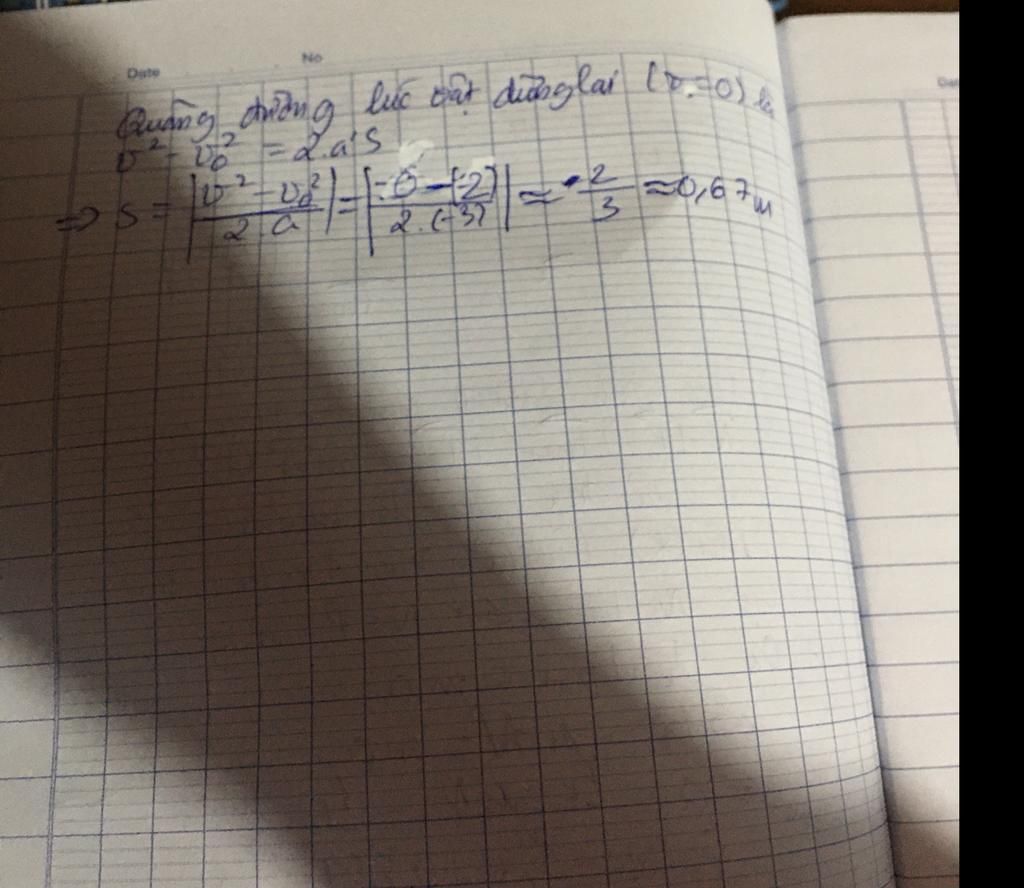 Date No
Quãng đường lúc vật dừng lại (v=0) là
v² - v₀² = 2.a.S
=> S = |v² - v₀² / 2 a| = |0 - (-2) / 2.(-3)| = 2/3 ≈ 0,67m